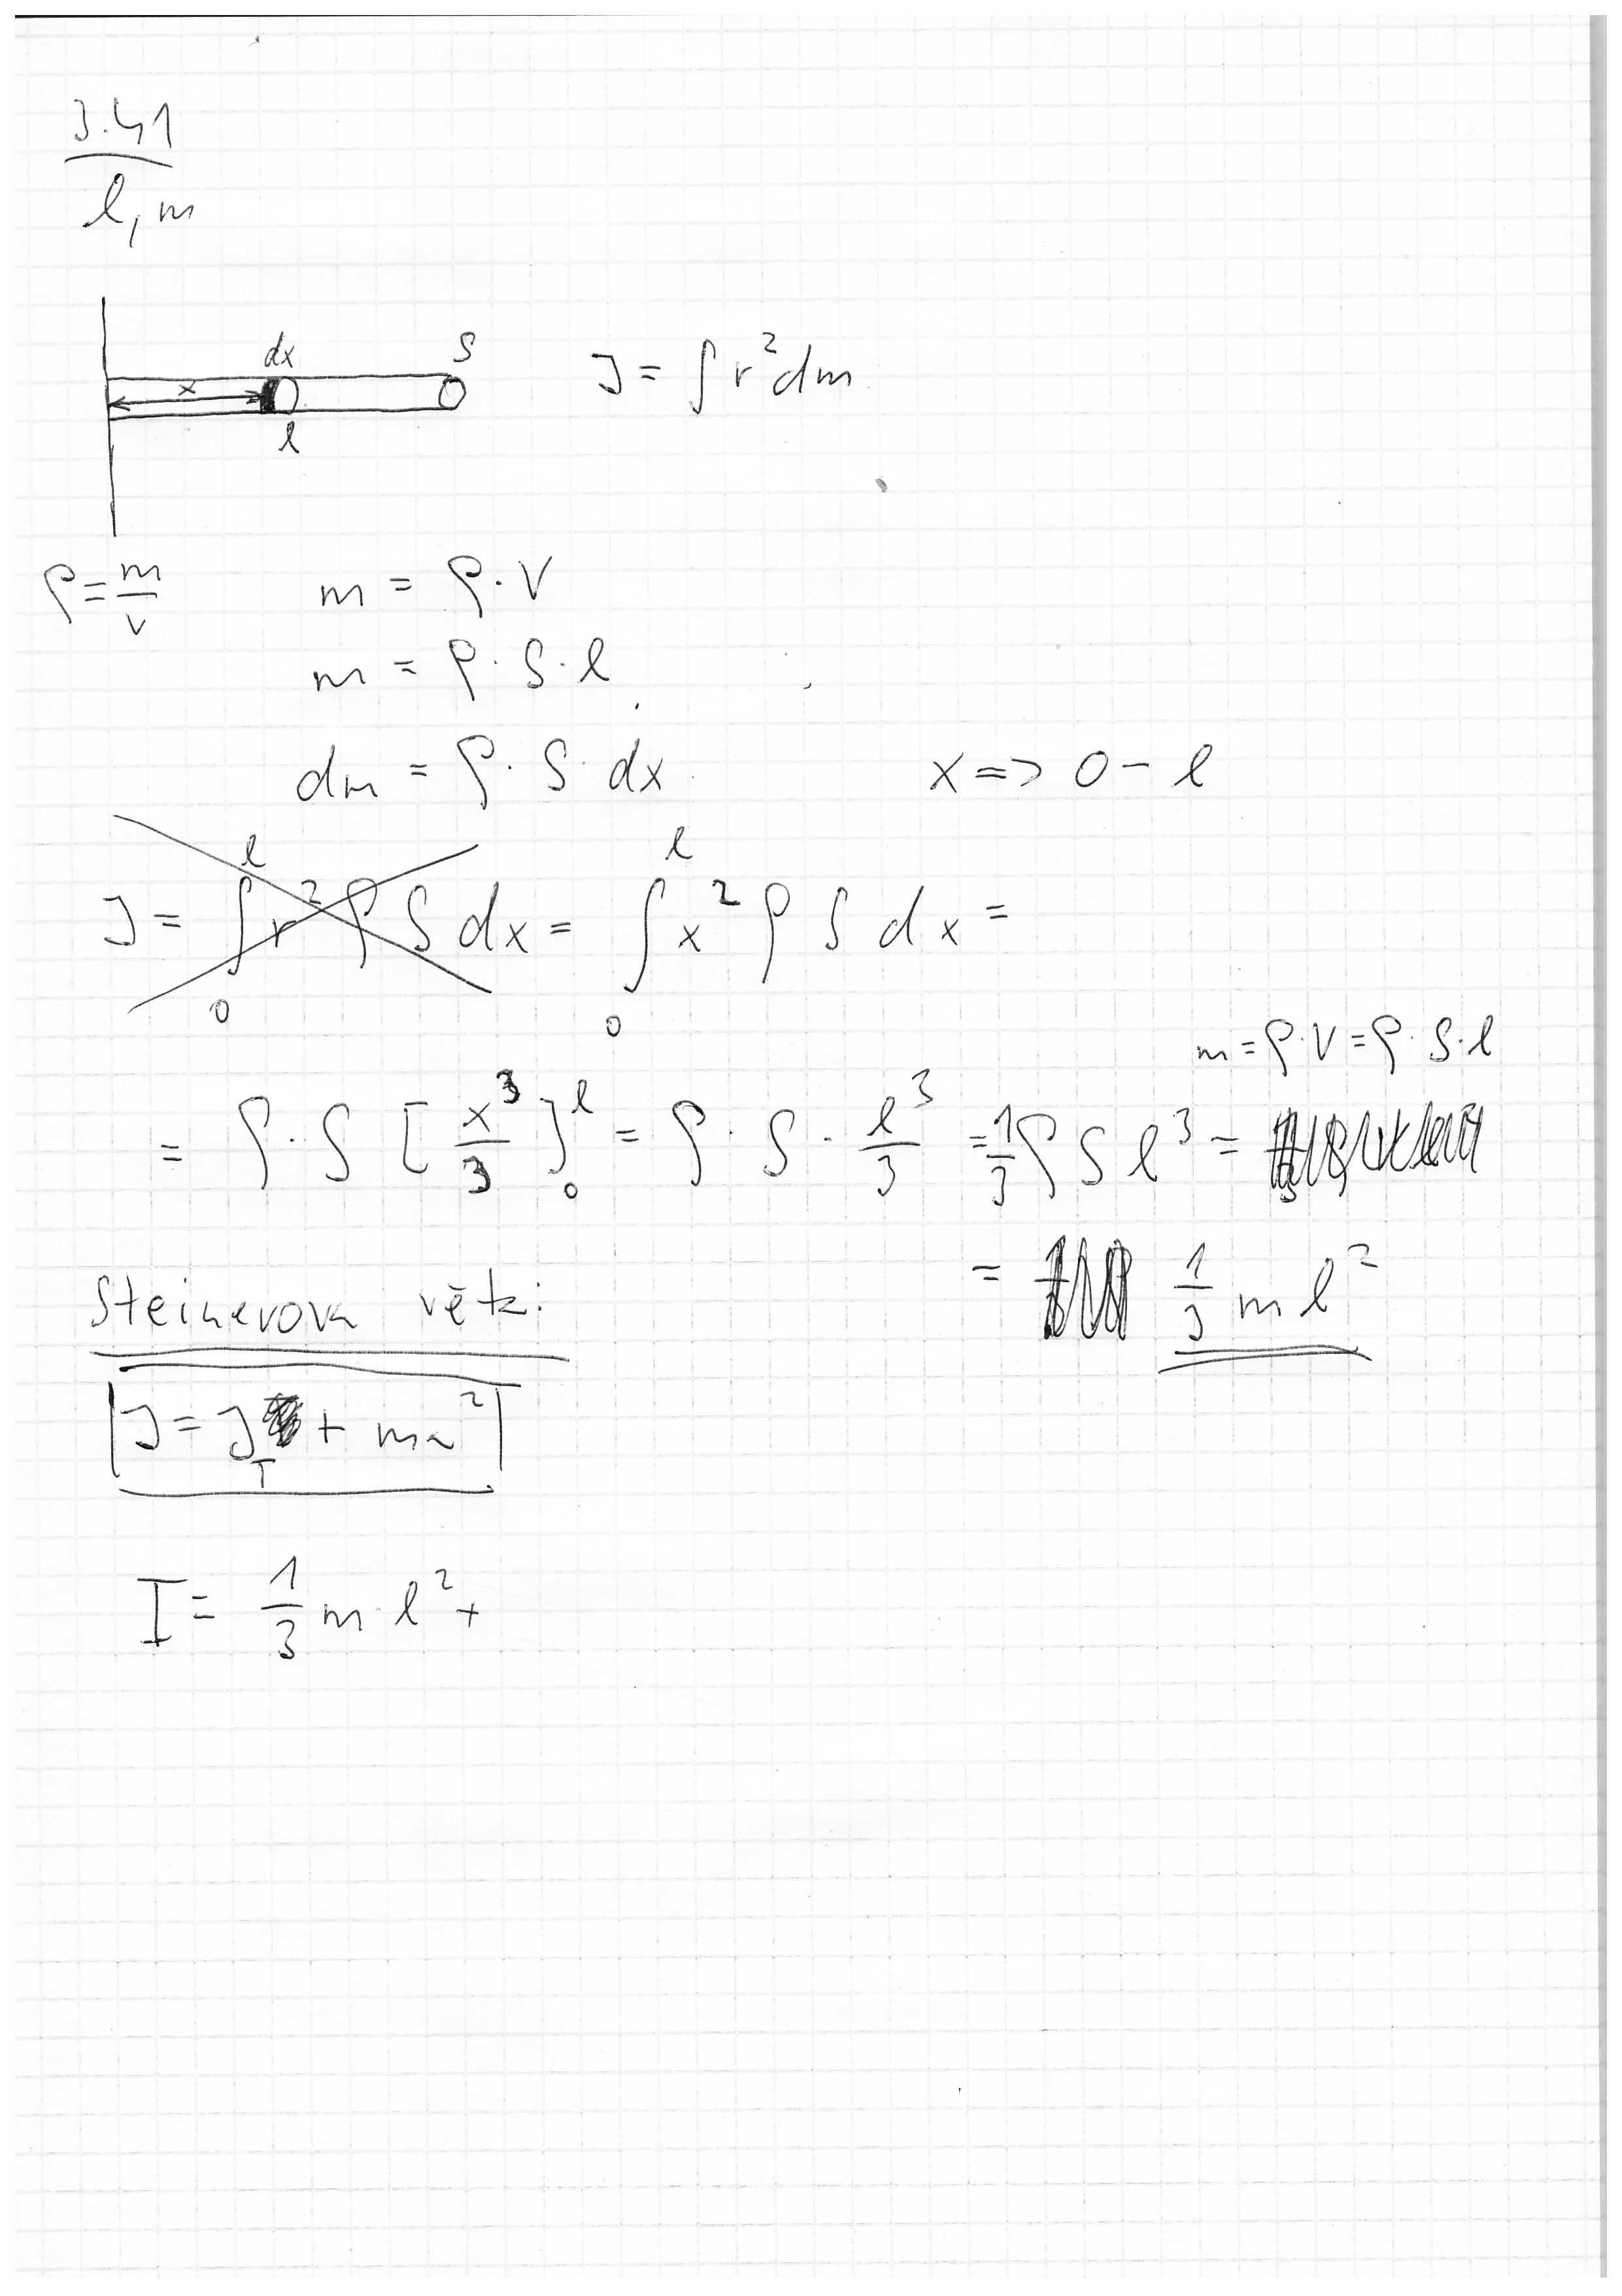 3.41
l, m
dx S
x
l
J = ∫ r² dm
ρ = m/V m = ρ · V
m = ρ · S · l
dm = ρ · S · dx x => 0 - l
J = ∫₀ˡ r² ρ S dx = ∫₀ˡ x² ρ S dx =
m = ρ · V = ρ · S · l
= ρ · S [x³/3]₀ˡ = ρ · S · l³/3 = 1/3 ρ S l³ =
= 1/3 m l²
Steinerova věta:
J = J_T + ma²
I = 1/3 m · l² +